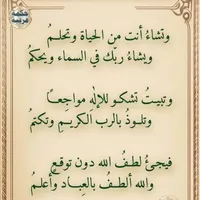 وتشاءُ أنت من الحياة وتحلمُ
ويشاءُ ربّك في السماء ويحكمُ
وتبيتُ تشكو للإله مواجعاً
وتلوذُ بالرب الكريمِ وتكتمُ
فيجئُ لطفُ الله دون توقعٍ
والله ألطفُ بالعبادِ وأعلمُ